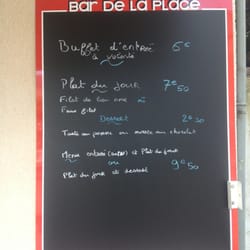 Bar De La Place
Buffet d'entrée 6€
à volonté
Plat du jour 7€50
Filet de
Dessert 2€30
Tarte aux pommes ou mousse au chocolat
Menu entrée (buffet) et Plat du jour
ou 9€50
Plat du jour et dessert